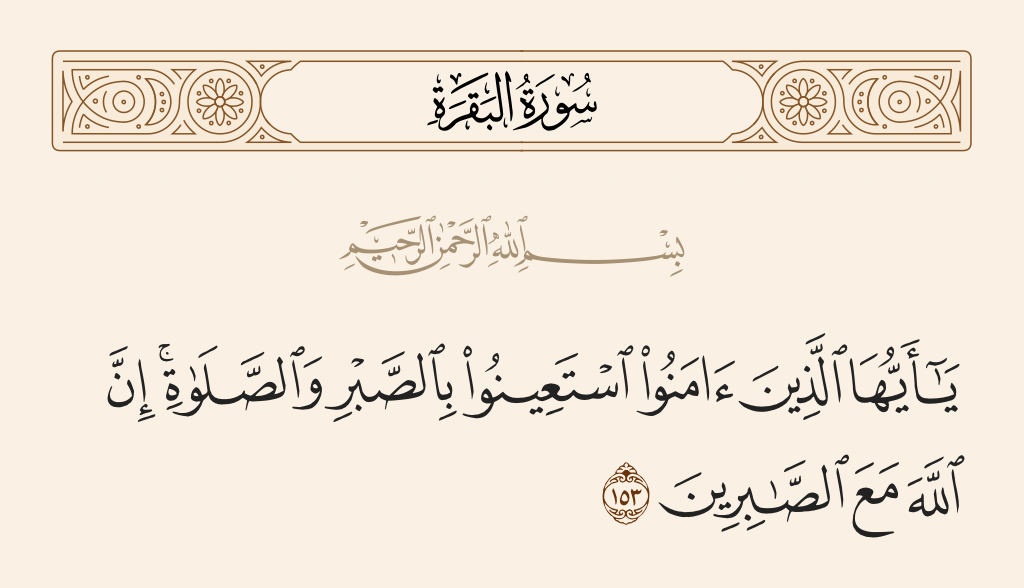 سُورَةُ البَقَرَةِ
بِسْمِ ٱللَّهِ ٱلرَّحْمَٰنِ ٱلرَّحِيمِ
يَـٰٓأَيُّهَا ٱلَّذِينَ ءَامَنُوا۟ ٱسْتَعِينُوا۟ بِٱلصَّبْرِ وَٱلصَّلَوٰةِ ۚ إِنَّ
ٱللَّهَ مَعَ ٱلصَّـٰبِرِينَ ١٥٣